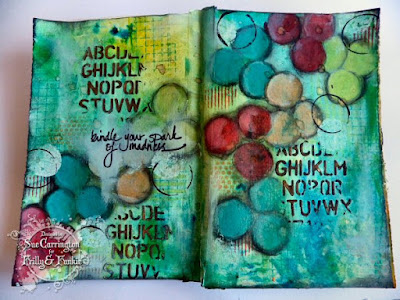 ABCDE
GHIJKLM
NOPQR
STUVWX
kindle your spark
of madness
ABCDE
GHIJKLM
NOPQR
STUVWX
ABCDE
GHIJKLM
NOPQR
STUVWX
Designed by
Sue Carrington
for
Frilly & Funkie